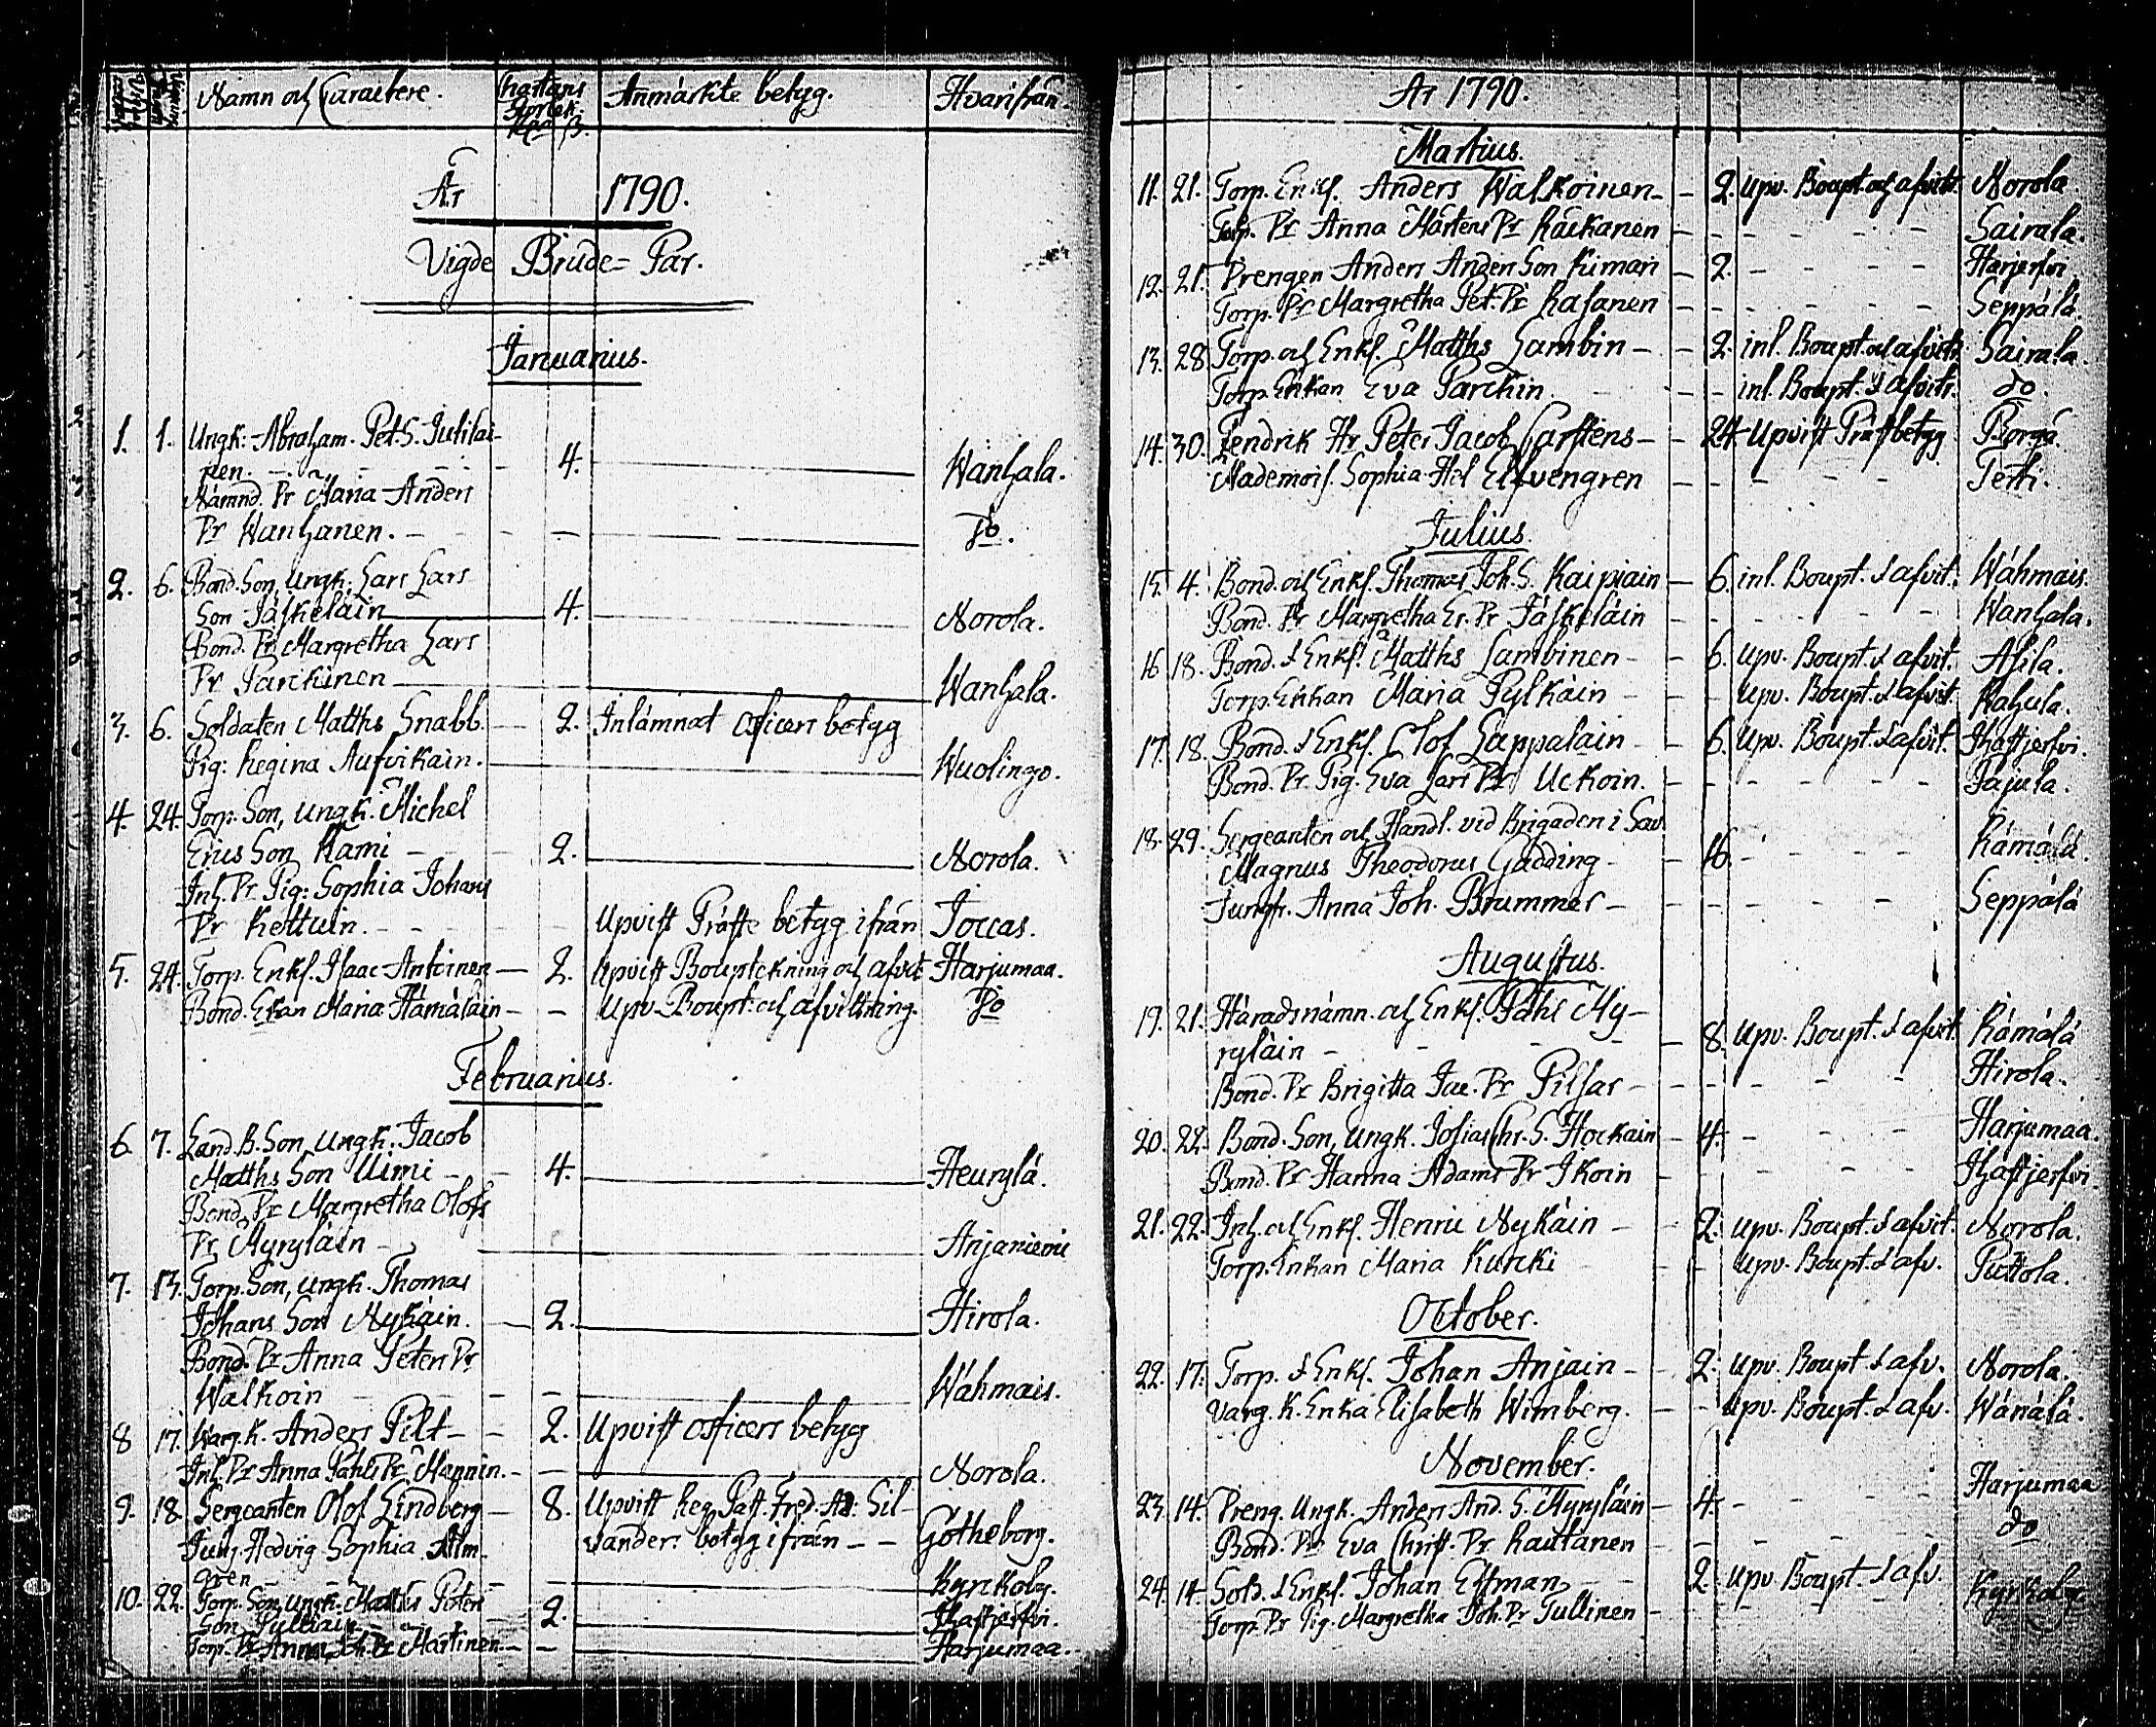 Namn och Caractere. Anmärkte betyg. Hvarifrån.
År 1790.
Vigde Brude-Par.
Januarius.
1. 1. Ungk: Abraham Pet. S. Jutilai-
nen. 4. Wanhala.
Nämnd. Dr Maria Anders
Dr Wanhanen. Do.
2. 6. Bond. Son, Ungk. Lars Lars
Son Jäskeläin 4. Norola.
Bond. Dr Margretha Lars
Dr Parckinen Wanhala.
3. 6. Soldaten Matths Snabb. 2. Inlämnat officers betyg
Pig: Regina Aufvikain. Wuolingo.
4. 24. Torp. Son, Ungk. Michel
Erics Son Kami 2. Norola.
Inh. Dr Pig: Sophia Johans
Dr Kettuin. Upvist Präste betyg ifrån Joccas.
5. 24. Torp. Enkl. Isaac Antoinen 2. Upvist Boupteckning och afvit Harjumaa.
Bond. Ekan Maria Hämäläin Upv. Boupt. och afvittring. Do
Februarius.
6 7. Land B. Son, Ungk. Jacob
Matths Son Uimi 4. Heurylä.
Bond. Dr Margretha Olofs
Dr Myryläin Anjaniemi
7. 13. Torp. Son, Ungk. Thomas
Johans Son Nykäin. 2. Hirola.
Bond. Dr Anna Peters Dr
Walkoin Wähmais.
8 17. Warg. K. Anders Pilt 2. Upvist officers betyg
Inh. Dr Anna Påhls Dr Mannin. Norola.
9. 18. Sergeanten Olof Lindberg 8. Upvist Reg. Past. Fred. Ad: Sil-
Jung. Hedvig Sophia Alm- vanders betyg ifrån Götheborg.
gren Kyrckoby.
10. 22. Torp. Son, Ungk. Matths Peters
Son Pulliain 2. Haftjerfvi.
Torp. Dr Anna Joh. Dr Martinen Harjumaa.
År 1790.
Martius.
11. 21. Torp. Enkl. Anders Walkoinen 2. Upv. Boupt. och afvitt. Norola
Torp. Dr Anna Mårtens Dr Räckanen Sairala.
12. 21. Drengen Anders Anders Son Kiman 2. Harjerfvi.
Torp. Dr Margretha Pet. Dr Rasanen Seppälä.
13. 28. Torp. och Enkl. Matths Lambin 2. inl. Boupt. och afvitt. Sairala.
Torp. Enkan Eva Parckin inl. Boupt. & afvitt. do.
14. 30. Fendrik Hr Peter Jacob Carstens 24. Upvist Prästbetyg Borgå.
Mademois. Sophia Hel Elfvengren Tetti.
Julius.
15. 4. Bond. och Enkl. Thomas Joh. S. Kaipiain 6. inl. Boupt. & afvit. Wähmais.
Bond. Dr Margretha Er. Dr Jäskeläin Wanhala.
16 18. Bond. & Enkl. Matths Lambinen 6. Upv. Boupt. & afvit. Asila.
Torp. Enkan Maria Pylkäin Upv. Boupt. & afvit. Rahula.
17. 18. Bond. & Enkl. Olof Lappalain 6. Upv. Boupt. & afvit. Haftjerfvi.
Bond. Dr Pig. Eva Lars Dr Uckoin. Pajula.
18. 29. Sergeanten och Handl. vid Brigaden i Sav.
Magnus Theodorus Gadding 16. Rämälä.
Jungfr. Anna Joh. Brummer Seppälä
Augustus.
19. 21. Häradsnämn. och Enkl. Påhl My-
ryläin 8. Upv. Boupt. & afvit. Rämälä
Bond. Dr Brigitta Jac. Dr Pilfar Hirola.
20. 22. Bond. Son, Ungk. Josias Chr. S. Hockain 4. Harjumaa.
Bond. Dr Hanna Adams Dr Ikoin Haftjerfvi.
21. 22. Inh. och Enkl. Henric Nykäin 2. Upv. Boupt. & afvit. Norola.
Torp. Enkan Maria Kurcki Upv. Boupt. & afv. Puttola.
October.
22. 17. Torp. & Enkl. Johan Anjain 2. Upv. Boupt. & afv. Norola.
Varg. K. Enka Elisabeth Wimberg. Upv. Boupt. & afv. Wänälä.
November.
23. 14. Dreng. Ungk. Anders And. S. Myryläin 4. Harjumaa
Bond. Dr Eva Christ. Dr Rautanen do
24. 14. Sold. & Enkl. Johan Elfman 2. Upv. Boupt. & afv. Kyrkoby
Torp. Dr Pig. Margretha Joh. Dr Tullinen